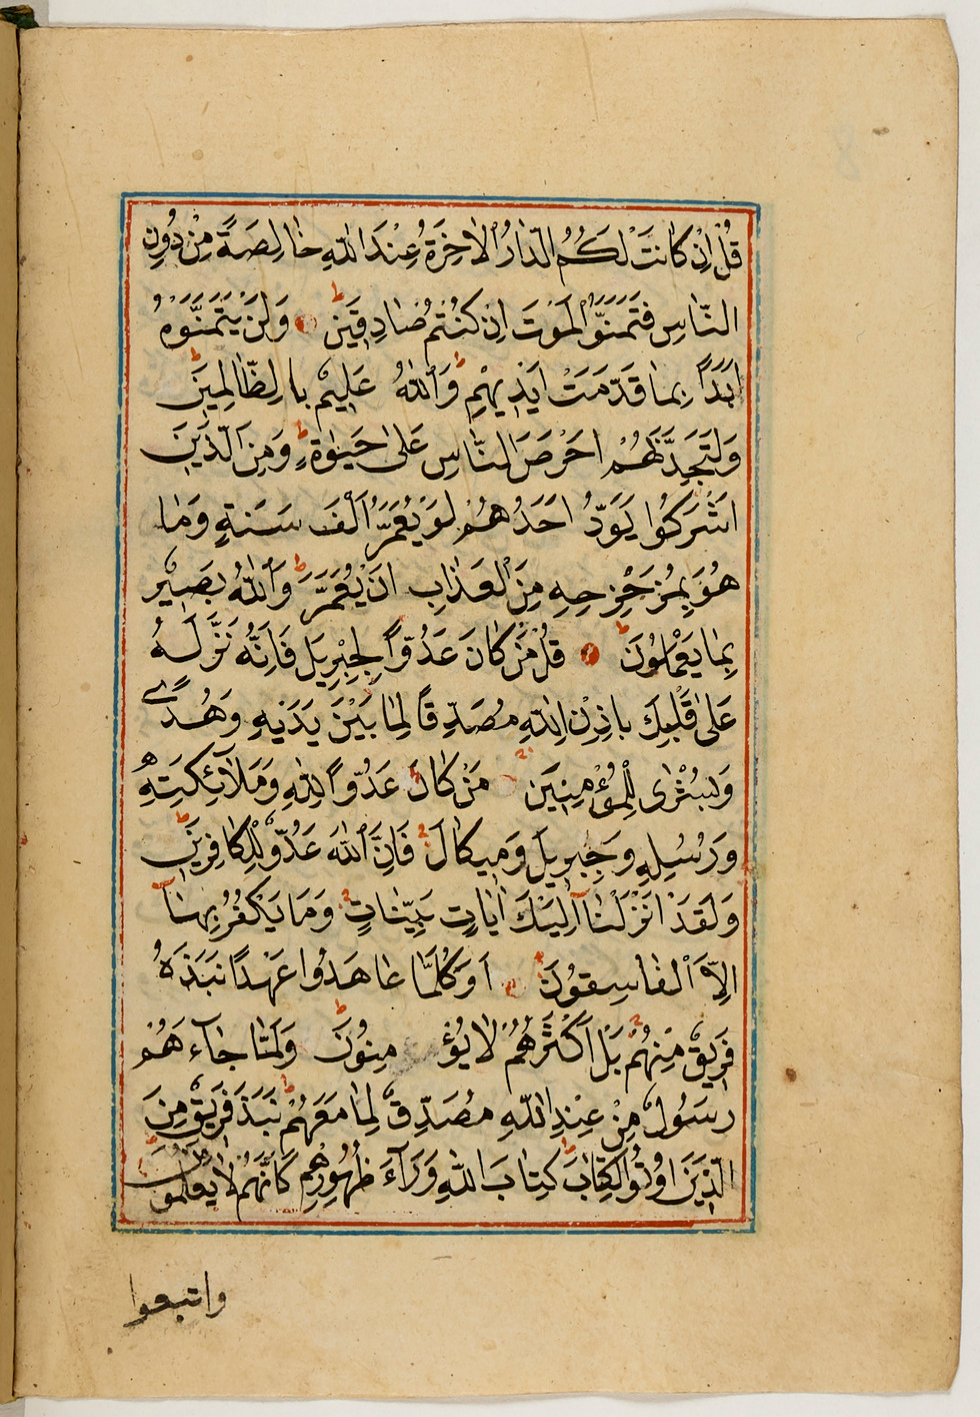 قُلْ اِنْ كَانَتْ لَكُمُ الدَّارُ الْاٰخِرَةُ عِنْدَ اللّٰهِ خَالِصَةً مِنْ دُونِ
النَّاسِ فَتَمَنَّوُا الْمَوْتَ اِنْ كُنْتُمْ صَادِقِينَ ط وَلَنْ يَتَمَنَّوْهُ
اَبَدًا بِمَا قَدَّمَتْ اَيْدِيهِمْ ط وَاللّٰهُ عَلِيمٌ بِالظَّالِمِينَ ط
وَلَتَجِدَنَّهُمْ اَحْرَصَ النَّاسِ عَلٰى حَيٰوةٍ ط وَمِنَ الَّذِينَ
اَشْرَكُوا يَوَدُّ اَحَدُهُمْ لَوْ يُعَمَّرُ اَلْفَ سَنَةٍ وَمَا
هُوَ بِمُزَحْزِحِهِ مِنَ الْعَذَابِ اَنْ يُعَمَّرَ ط وَاللّٰهُ بَصِيرٌ
بِمَا يَعْمَلُونَ ط قُلْ مَنْ كَانَ عَدُوًّا لِجِبْرِيلَ فَاِنَّهُ نَزَّلَهُ
عَلٰى قَلْبِكَ بِاِذْنِ اللّٰهِ مُصَدِّقًا لِمَا بَيْنَ يَدَيْهِ وَهُدًى
وَبُشْرٰى لِلْمُؤْمِنِينَ مَنْ كَانَ عَدُوًّا لِلّٰهِ وَمَلَائِكَتِهِ
وَرُسُلِهِ وَجِبْرِيلَ وَمِيكَالَ فَاِنَّ اللّٰهَ عَدُوٌّ لِلْكَافِرِينَ ط
وَلَقَدْ اَنْزَلْنَا اِلَيْكَ اٰيَاتٍ بَيِّنَاتٍ وَمَا يَكْفُرُ بِهَا
اِلَّا الْفَاسِقُونَ اَوَكُلَّمَا عَاهَدُوا عَهْدًا نَبَذَهُ
فَرِيقٌ مِنْهُمْ بَلْ اَكْثَرُهُمْ لَا يُؤْمِنُونَ ط وَلَمَّا جَاءَهُمْ
رَسُولٌ مِنْ عِنْدِ اللّٰهِ مُصَدِّقٌ لِمَا مَعَهُمْ نَبَذَ فَرِيقٌ مِنَ
الَّذِينَ اُوتُوا الْكِتَابَ ط كِتَابَ اللّٰهِ وَرَآءَ ظُهُورِهِمْ كَاَنَّهُمْ لَا يَعْلَمُونَ
واتبعوا